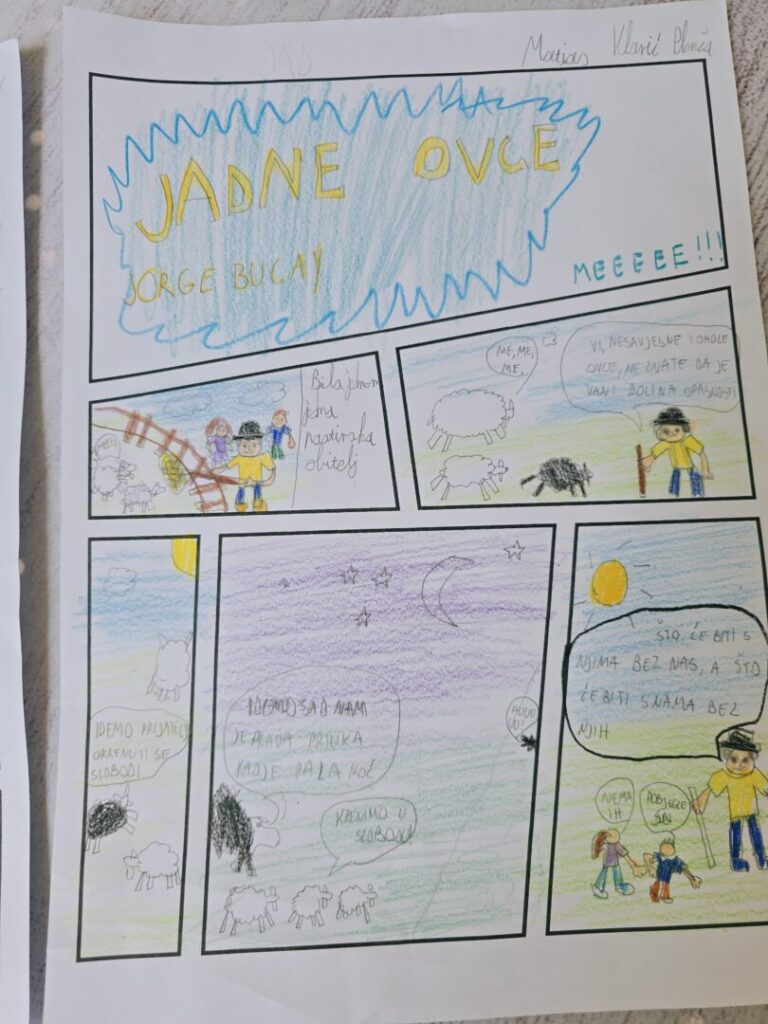 Matias Klarić
JADNE OVCE
JORGE BUCAY
MEEEEE!!!
Bila jednom
jedna
pastirska
obitelj
ME, ME,
ME,
VI, NESAVJESNE I OHOLE
OVCE, NE ZNATE DA JE
VANI DOLINA OPASNOSTI
IDEMO PRIJATELJI
OKRENUTI SE
SLOBODI
IDEMO, SAD NAM
JE PRILIKA
KAD JE PALA NOĆ
KRENIMO U
SLOBODU!
AUUU
UU!
ŠTO ĆE BITI S
NJIMA BEZ NAS, A ŠTO
ĆE BITI S NAMA BEZ
NJIH
NEMA
IH
POBJEGLE
SU